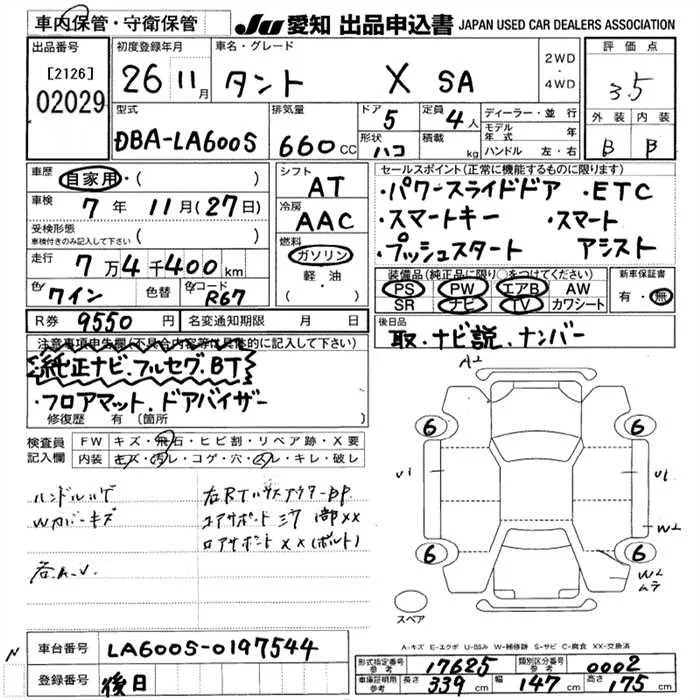 車内保管・守衛保管
JU 愛知 出品申込書 JAPAN USED CAR DEALERS ASSOCIATION
出品番号
[2126]
02029
初度登録年月
26 11月
車名・グレード
タント X SA
2WD
・
4WD
評価点
3.5
型式
DBA-LA600S
排気量
660cc
ドア
5
定員
4人
形状
ハコ
積載
kg
ディーラー・並行
モデル年式 年
ハンドル 左・右
外装 内装
B B
車歴
自家用・( )
車検 7年 11月(27日)
受検形態
車検付きのみ記入して下さい ( )
走行 7万4千400km
色 ワイン 色替 色コード R67
シフト
AT
冷房
AAC
燃料
ガソリン
軽・油
( )
セールスポイント(正常に機能するものに限ります)
・パワースライドドア ・ETC
・スマートキー ・スマート
・プッシュスタート アシスト
装備品(純正品に限り○をつけてください)
PS PW エアB AW
SR ナビ TV カワシート
新車保証書
有・無
R券 9550円 名変通知期限 月 日
後日品
取・ナビ説・ナンバー
注意事項申告欄(不具合内容等は具体的に記入して下さい)
純正ナビ.フルセグ.BT
・フロアマット.ドアバイザー
修復歴 有 〔箇所 〕
検査員
記入欄
FW キズ・飛石・ヒビ割・リペア跡・X要
内装 キズ・汚レ・コゲ・穴・スレ・キレ・破レ
Wカバーキズ
コアサポート
ロアサポート XX(ボルト)
A⊥
6 6
U1
W⊥
6 6
W⊥
スペア
A-キズ E-エクボ U-凹み W-補修跡 S-サビ C-腐食 XX-交換済
N
車台番号 LA600S-0197544
登録番号 後日
形式指定番号 参考 17625 類別区分番号 参考 0002
車庫証明用 参考 長さ 339cm 幅 147cm 高さ 175cm